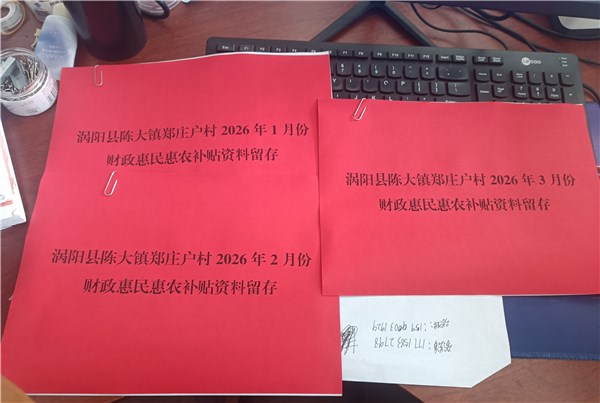 涡阳县陈大镇郑庄户村 2026 年 1 月份
财政惠民惠农补贴资料留存
涡阳县陈大镇郑庄户村 2026 年 2 月份
财政惠民惠农补贴资料留存
涡阳县陈大镇郑庄户村 2026 年 3 月份
财政惠民惠农补贴资料留存
177 1583 2798
159 9003 1929